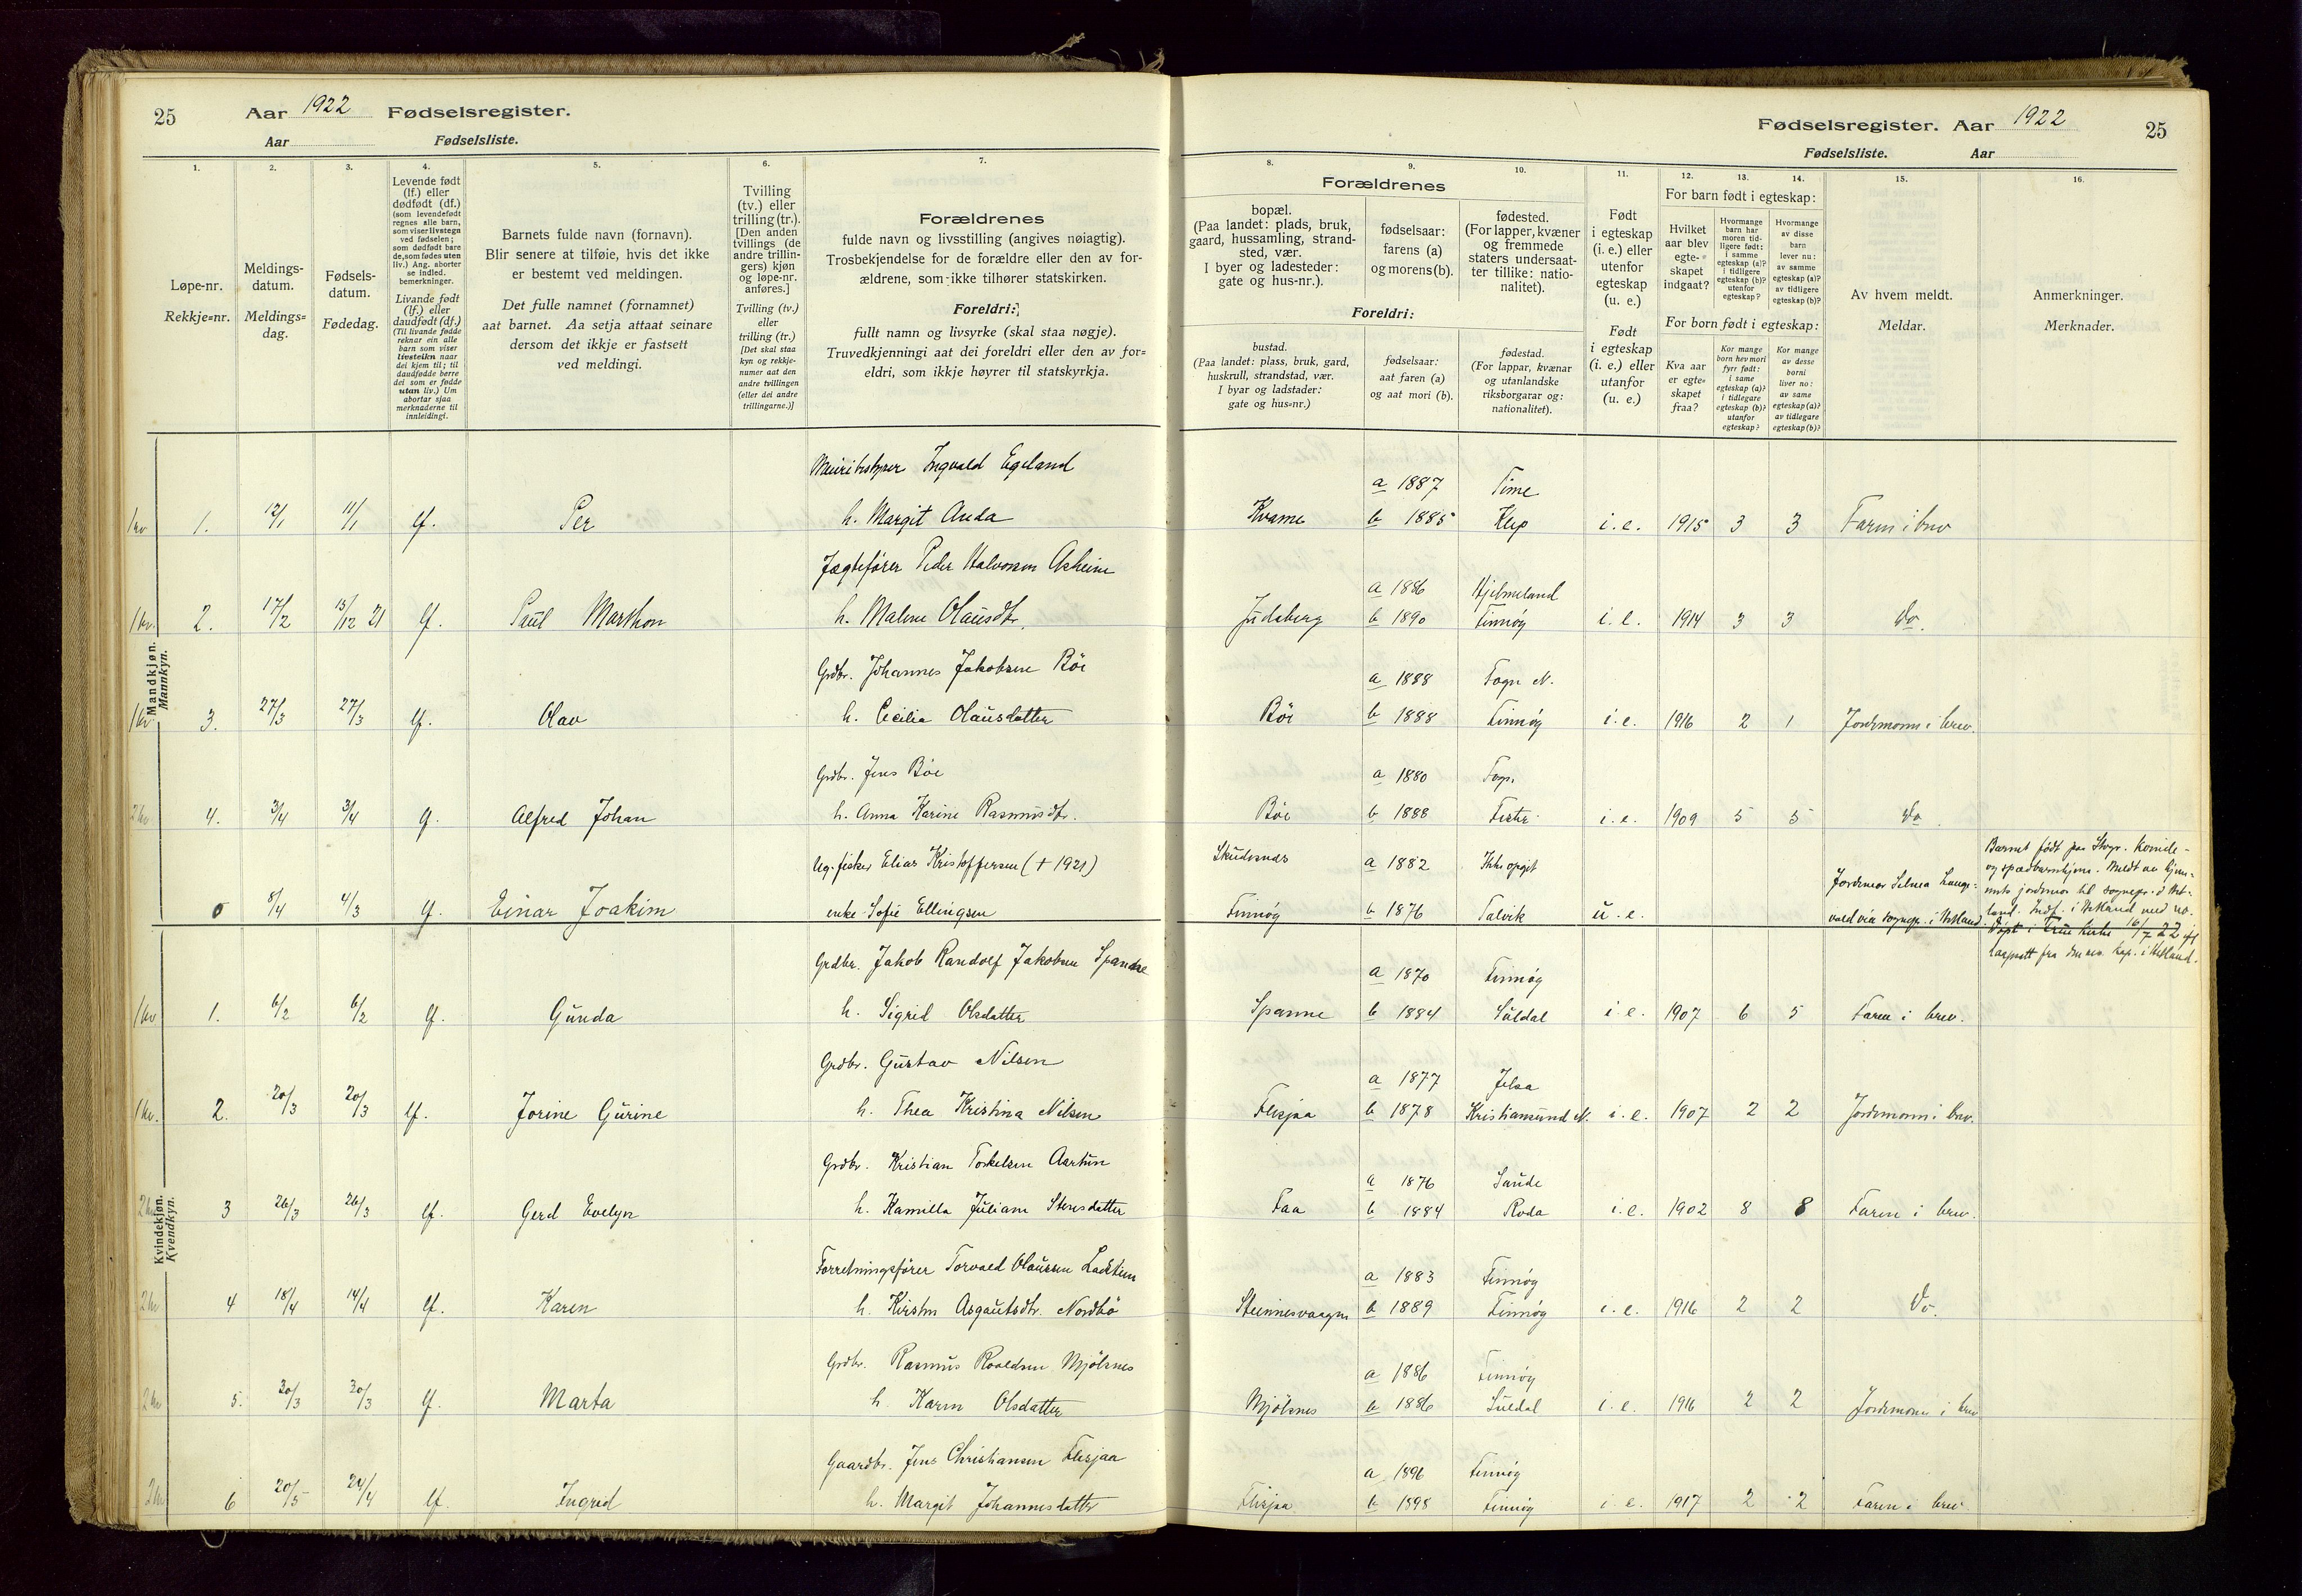 25 Aar 1922 Fødselsregister.
Aar Fødselsliste.
1. 2. 3. 4. 5. 6. 7.
Løpe-nr.
Rekkje-nr.
Meldings-
datum.
Meldings-
dag.
Fødsels-
datum.
Fødedag.
Levende født
(lf.) eller
dødfødt (df.)
(som levendefødt
regnes alle barn,
som viser livstegn
ved fødselen;
som dødfødt bare
de, som fødes uten
liv.) Ang. aborter
se indled.
bemerkninger.
Livande født
(lf.) eller
daudfødt (df.)
(Til livande fødde
reknar ein alle
barn som viser
livsteikn naar
dei kjem til; til
daudfødde berre
dei som er fødde
utan liv.) Um
abortar sjaa
merknaderne til
innleidingi.
Barnets fulde navn (fornavn).
Blir senere at tilføie, hvis det ikke
er bestemt ved meldingen.
Det fulle namnet (fornamnet)
aat barnet. Aa setja attaat seinare
dersom det ikkje er fastsett
ved meldingi.
Tvilling
(tv.) eller
trilling (tr.).
[Den anden
tvillings (de
andre trillin-
gers) kjøn
og løpe-nr.
anføres.]
Tvilling (tv.)
eller
trilling (tr.)
[Det skal staa
kyn og rekkje-
numer aat den
andre tvillingen
(eller dei andre
trillingarne.)]
Forældrenes
fulde navn og livsstilling (angives nøiagtig).
Trosbekjendelse for de forældre eller den av for-
ældrene, som ikke tilhører statskirken.
Foreldri:
fullt namn og livsyrke (skal staa nøgje).
Truvedkjenningi aat dei foreldri eller den av for-
eldri, som ikkje høyrer til statskyrkja.
Mandkjøn.
Mannkyn.
Ingvald Egeland
1kv 1. 12/1 11/1 lf. Per h. Margit Anda
Jægtefører Peder Halvorsen Asheim
1kv. 2. 17/2 13/12 21 lf. Paul Marthon h. Malene Olausdtr.
Grdbr. Johannes Jakobsen Böe
1kv 3. 27/3 27/3 lf. Olav h. Cecilia Olausdatter
Grdbr. Jens Böe
2kv 4. 3/4 3/4 lf. Alfred Johan h. Anna Karine Rasmusdtr.
Ug. fisker Elias Kristoffersen († 1921)
0 8/4 4/3 lf. Einar Joakim enke Sofie Ellingsen
Kvindekjøn.
Kvendkyn.
Grdbr. Jakob Randolf Jakobsen Spanne
1kv 1. 6/2 6/2 lf. Gunda h. Sigrid Olsdatter
Grdbr. Gustav Nilsen
1kv. 2. 20/3 20/3 lf. Jorine Gurine h. Thea Kristina Nilsen
Grdbr. Kristian Torkelsen Aartun
2kv 3 26/3 26/3 lf. Gerd Evelyn h. Kamilla Juliane
Forretningsfører Torvald Olaussen
2kv 4 18/4 14/4 lf. Karen h. Kirsten Asgautsdtr. Nordbö
Grdbr. Rasmus Roaldsen Mjölsnes
2kv 5. 30/3 30/3 lf. Marta h. Karen Olsdatter
Gaardbr. Jens Christiansen Flesjaa
2kv 6 20/5 24/4 lf. Ingrid h. Margit Johannesdatter
Fødselsregister. Aar 1922 25
Fødselsliste. Aar
8. 9. 10. 11. 12. 13. 14. 15. 16.
Forældrenes
bopæl.
(Paa landet: plads, bruk,
gaard, hussamling, strand-
sted, vær.
I byer og ladesteder:
gate og hus-nr.).
fødselsaar:
farens (a)
og morens (b).
fødested.
(For lapper, kvæner
og fremmede
staters undersaat-
ter tillike: natio-
nalitet).
Foreldri:
bustad.
(Paa landet: plass, bruk, gard,
huskrull, strandstad, vær.
I byar og ladstader:
gate og hus-nr.)
fødselsaar:
aat faren (a)
og aat mori (b).
fødestad.
(For lappar, kvænar
og utanlandske
riksborgarar og:
nationalitet).
Født
i egteskap
(i. e.) eller
utenfor
egteskap
(u. e.)
Født
i egteskap
(i. e.) eller
utanfor
(u. e.)
For barn født i egteskap:
Hvilket
aar blev
egte-
skapet
indgaat?
Hvormange
barn har
moren tid-
ligere født:
i samme
egteskap (a)?
i tidligere
egteskap (b)?
utenfor
egteskap?
Hvormange
av disse
barn
lever nu:
av samme
egteskap (a)?
av tidligere
egteskap (b)?
For born født i egteskap:
Kva aar
er egte-
skapet
fraa?
Kor mange
born hev mori
fyrr født:
i same
egteskap (a)?
i tidlegare
egteskap (b)?
utanfor
egteskap?
Kor mange
av desse
borni
liver no:
av same
egteskap (a)?
av tidlegare
egteskap (b)?
Av hvem meldt.
Meldar.
Anmerkninger.
Merknader.
a 1887 Time
Kvame b 1885 Klep i. e. 1915 3 3 Faren i brev
a 1886 Hjelmeland
Judaberg b 1890 Finnöy i. e. 1914 3 3 Do.
a 1888 Sogn N.
Böe b 1888 Finnöy i. e. 1916 2 1 Jordmoren i brev.
a 1880 Sogn.
Böe b 1888 Fister i. e. 1909 5 5 Do
Skudesnes a 1882 Ikke opgit
Finnöy b 1876 Talvik u. e. Jordmor Selma
vald via sognepr. i Hetland.
Barnet født paa Stvgr. kvinde-
og spædbarnhjem. Meldt av hjem-
mets jordmor til sognepr. i Het-
land. Indf. i Hetland med no.
Döpt i kirke 16/7 22
fra res. kap. i Hetland.
a 1870 Finnöy
Spanne b 1884 Suldal i. e. 1907 6 5 Faren i brev.
a 1877 Jelsa
Flesjaa b 1878 Kristiansund N. i. e. 1907 2 2 Jordmoren i brev.
a 1876 Saude
Faa b 1884 Roda i. e. 1902 8 8 Faren i brev.
a 1883 Finnöy
Steinnesvaagen b 1889 Finnöy i. e. 1916 2 2 Do.
a 1886 Finnöy
Mjölsnes b 1886 Suldal i. e. 1916 2 2 Jordmoren i brev
a 1896 Finnöy
Flesjaa b 1898 Finnöy i. e. 1917 2 2 Faren i brev